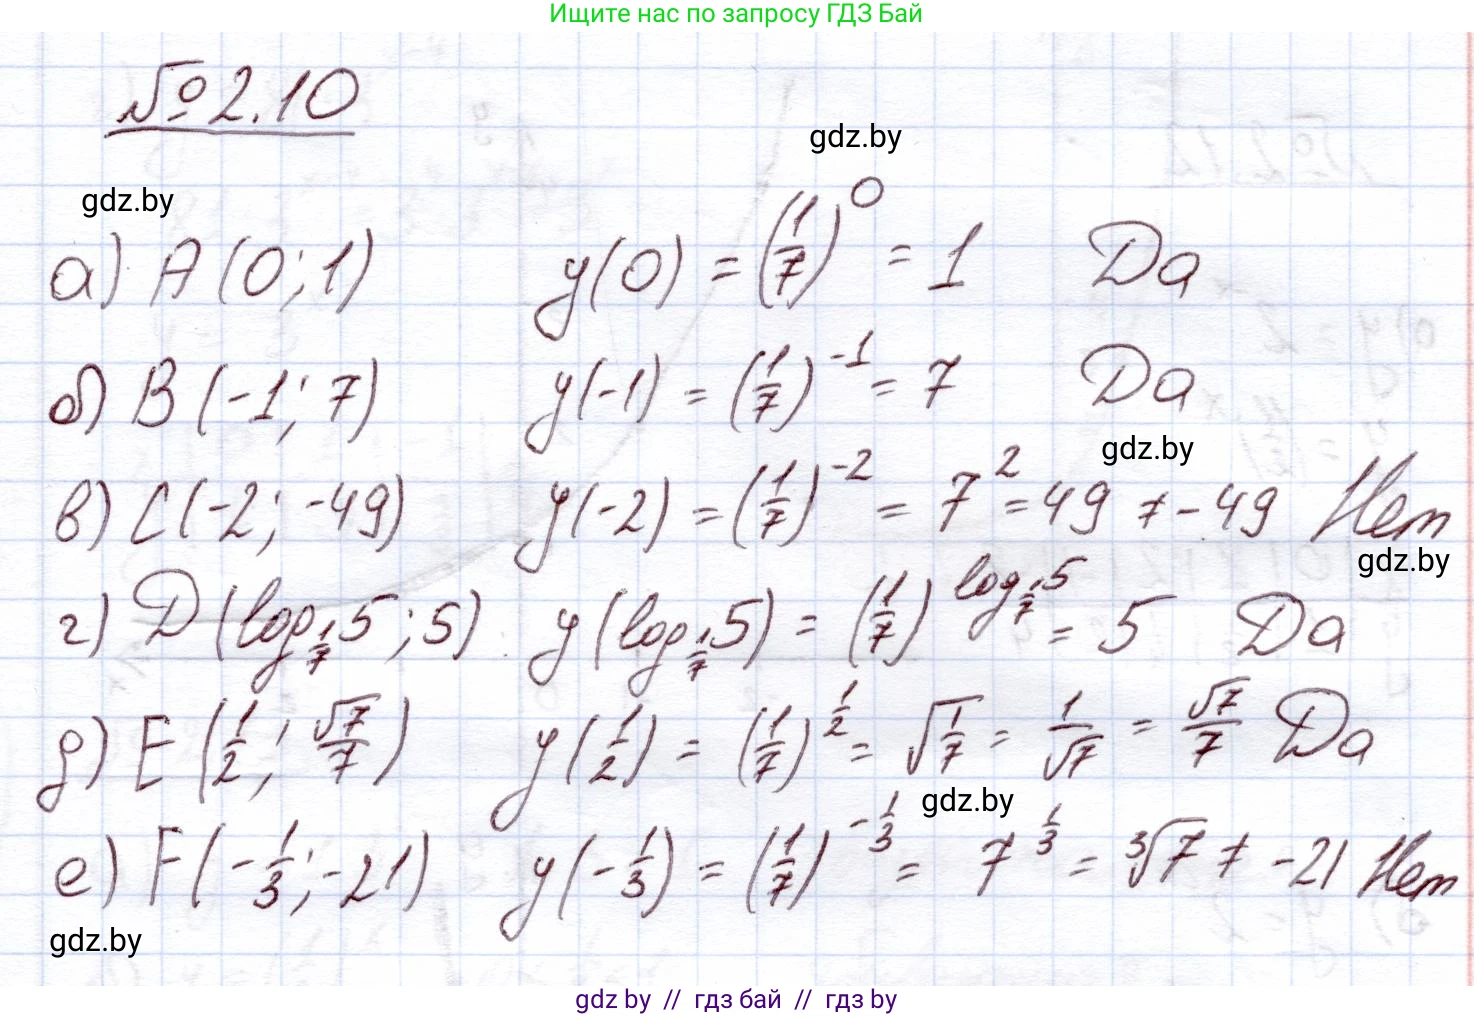 Ищите нас по запросу ГДЗ Бай
№ 2.10
gdz.by
gdz.by
а) A (0; 1) y(0) = (1/7)^0 = 1 Да
б) B (-1; 7) y(-1) = (1/7)^-1 = 7 Да
gdz.by
в) C (-2; -49) y(-2) = (1/7)^-2 = 7^2 = 49 ≠ -49 Нет
gdz.by
г) D (log_1/7 5; 5) y(log_1/7 5) = (1/7)^log_1/7 5 = 5 Да
д) E (1/2; √7/7) y(1/2) = (1/7)^1/2 = √1/7 = 1/√7 = √7/7 Да
gdz.by
е) F (-1/3; -21) y(-1/3) = (1/7)^-1/3 = 7^1/3 = ³√7 ≠ -21 Нет
gdz.by
gdz by // гдз бай // гдз by